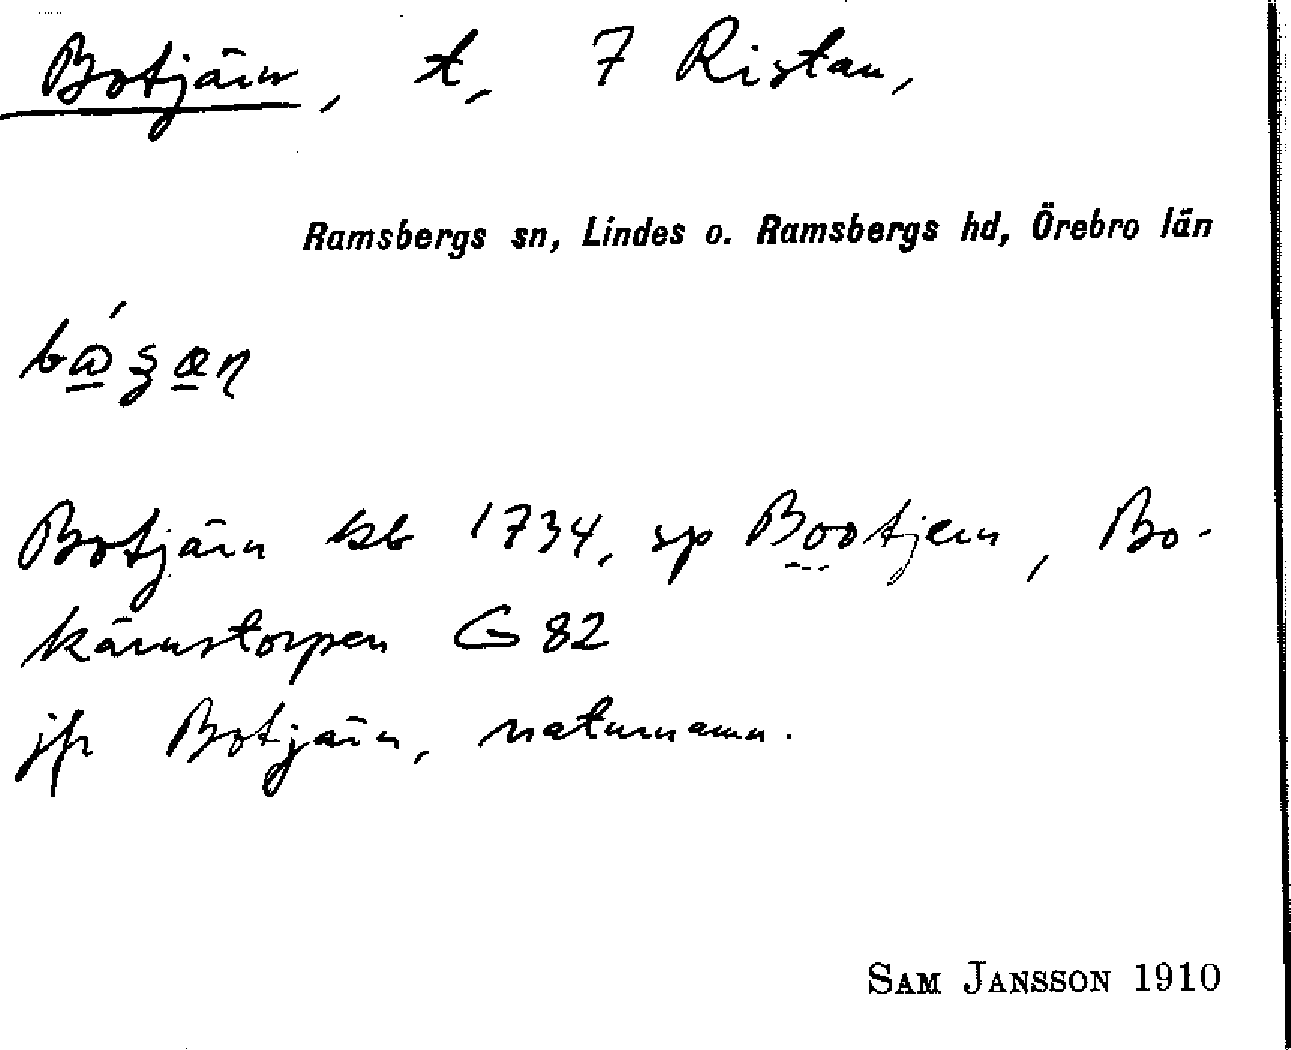 Botjärn, t, 7 Ristan,
Ramsbergs sn, Lindes o. Ramsbergs hd, Örebro län
Botjärn kb 1734, sp Bootjern, Bo-
kärnstorpen G 82
jfr Botjärn, naturnamn.
SAM JANSSON 1910